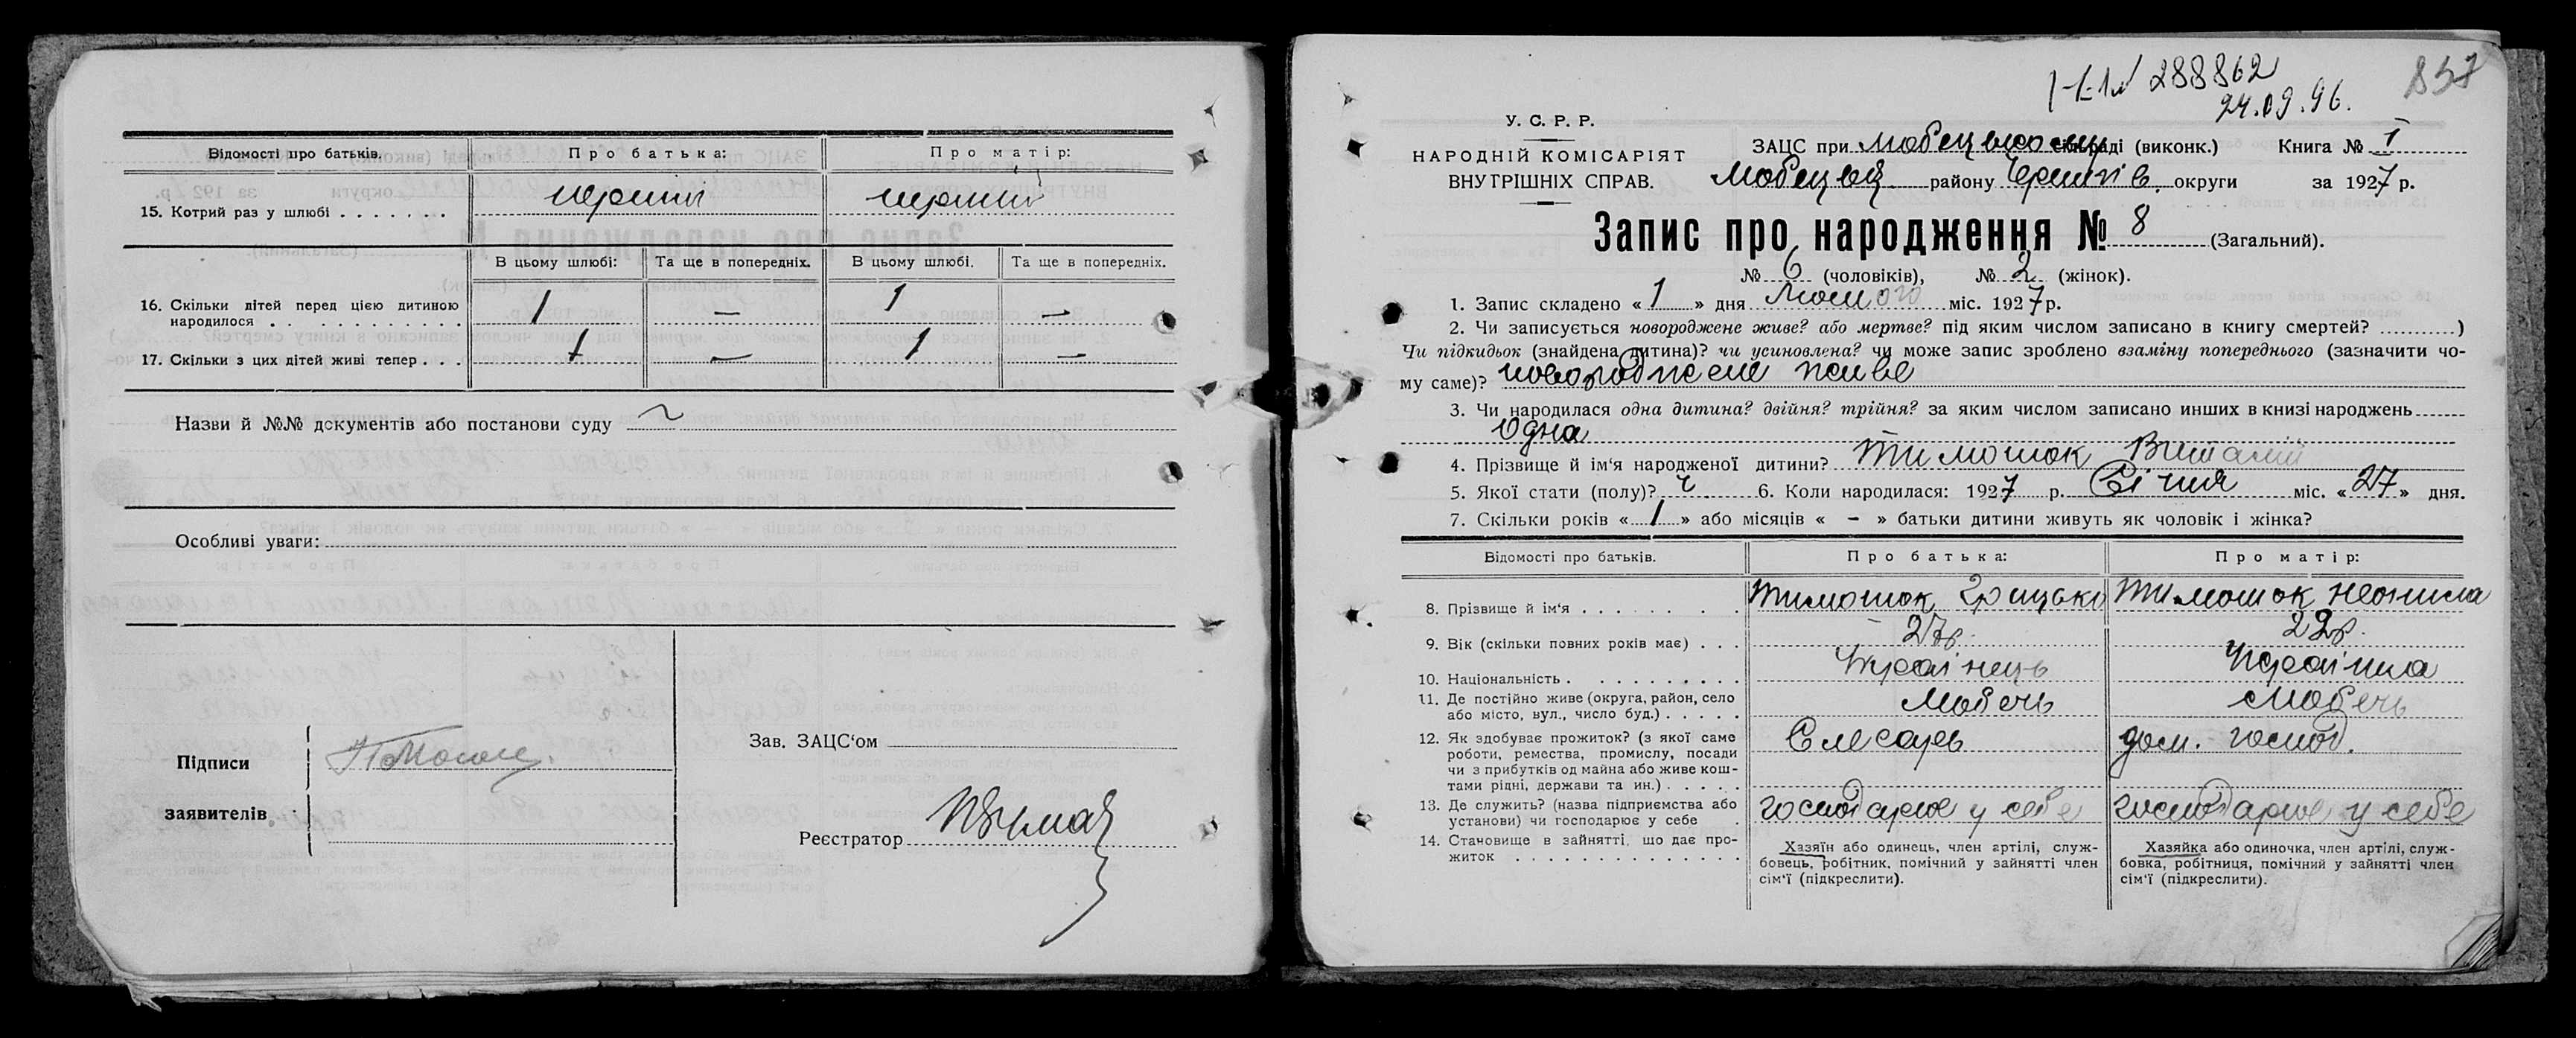 Відомості про батьків. Про батька: Про матір:
15. Котрий раз у шлюбі . . . . . . . перший перший
В цьому шлюбі: Та ще в попередніх. В цьому шлюбі. Та ще в попередніх.
16. Скільки дітей перед цією дитиною
народилося . . . . . . . . . . . 1 — 1 —
17. Скільки з цих дітей живі тепер . . . 1 — 1 —
Назви й №№ документів або постанови суду ~
Особливі уваги:
Підписи
заявителів
Зав. ЗАЦС'ом
Реєстратор
288862
24.09.96.
857
У. С. Р. Р.
НАРОДНІЙ КОМІСАРІЯТ
ВНУТРІШНІХ СПРАВ.
ЗАЦС при Любецькому сільраді (виконк.) Книга № I
Любецьк. району Чернігів. округи за 1927 р.
Запис про народження № 8 (Загальний).
№ 6 (чоловіків), № 2 (жінок).
1. Запис складено «1» дня Лютого міс. 1927 р.
2. Чи записується новороджене живе? або мертве? під яким числом записано в книгу смертей? ..........)
Чи підкидьок (знайдена дитина)? чи усиновлена? чи може запис зроблено взаміну попереднього (зазначити чо-
му саме)? новороджене живе
3. Чи народилася одна дитина? двійня? трійня? за яким числом записано инших в книзі народжень
Одна
4. Прізвище й ім'я народженої дитини? Тимошок Віталій
5. Якої стати (полу)? ч. 6. Коли народилася: 1927 р. Січня міс. «27» дня.
7. Скільки років «1» або місяців « - » батьки дитини живуть як чоловік і жінка?
Відомості про батьків. Про батька: Про матір:
8. Прізвище й ім'я . . . . . . . Тимошок Грицько Тимошок Неоніла
9. Вік (скільки повних років має) . . . 27 р. 22 р.
10. Національність . . . . . . . . . . Українець Українка
11. Де постійно живе (округа, район, село
або місто, вул., число буд.) . . . . . Любечь Любечь
12. Як здобуває прожиток? (з якої саме
роботи, ремества, промислу, посади
чи з прибутків од майна або живе кош-
тами рідні, держави та ин.) . . . . . Слесарь дом. господ.
13. Де служить? (назва підприємства або
установи) чи господарює у себе господарює у себе господарює у себе
14. Становище в зайнятті, що дає про-
житок . . . . . . . . . . . . . .
Хазяїн або одинець, член артілі, служ-
бовець, робітник, помічний у зайнятті член
сім'ї (підкреслити).
Хазяйка або одиночка, член артілі, служ-
бовка, робітниця, помічний у зайнятті член
сім'ї (підкреслити).